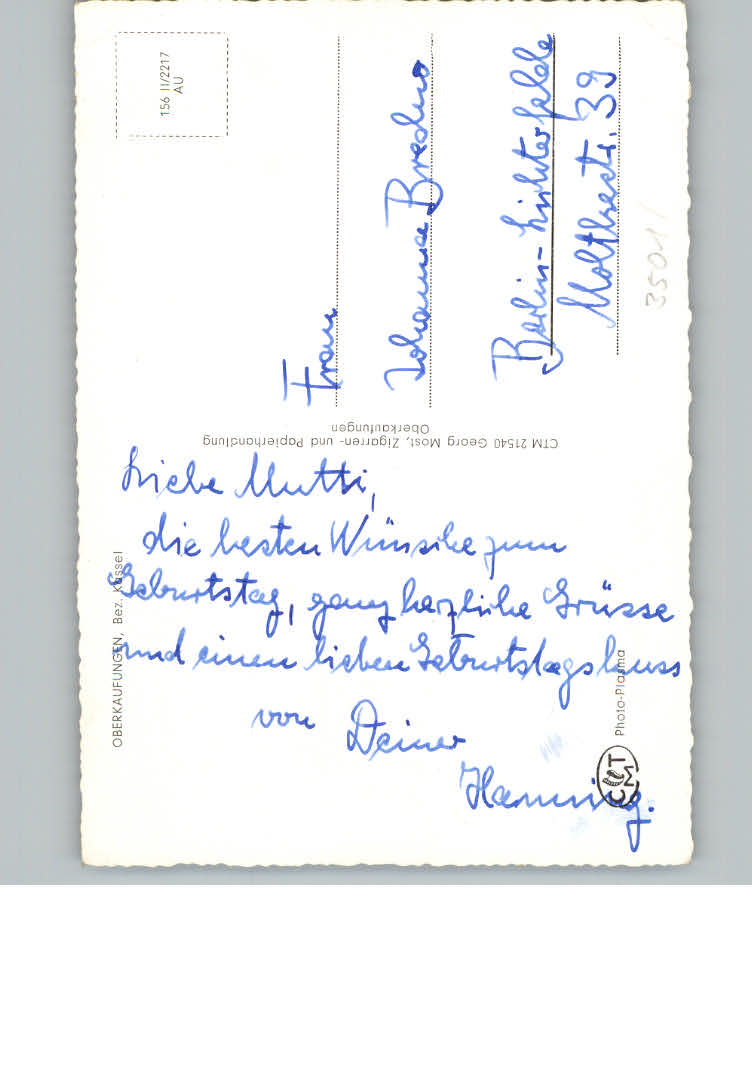 Liebe Mutti,
die besten Wünsche zum
Geburtstag, ganz herzliche Grüsse
und einen lieben Geburtstagskuss
von Deiner
Frau
Johanna
Berlin-Lichterfelde
Moltkestr. 39
3501/
156 II/2217
AU
CTM 21540 Georg Most, Zigarren- und Papierhandlung
Oberkaufungen
OBERKAUFUNGEN, Bez. Kassel
Photo-Plasma
CMT